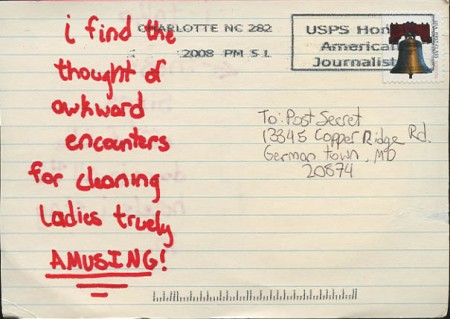 i find the
thought of
awkward
encounters
for cleaning
ladies truely
AMUSING!
CHARLOTTE NC 282
2008 PM 5 L
USPS Hon
American
Journalist
To: Post Secret
13345 Copper Ridge Rd.
German town, MD
20874